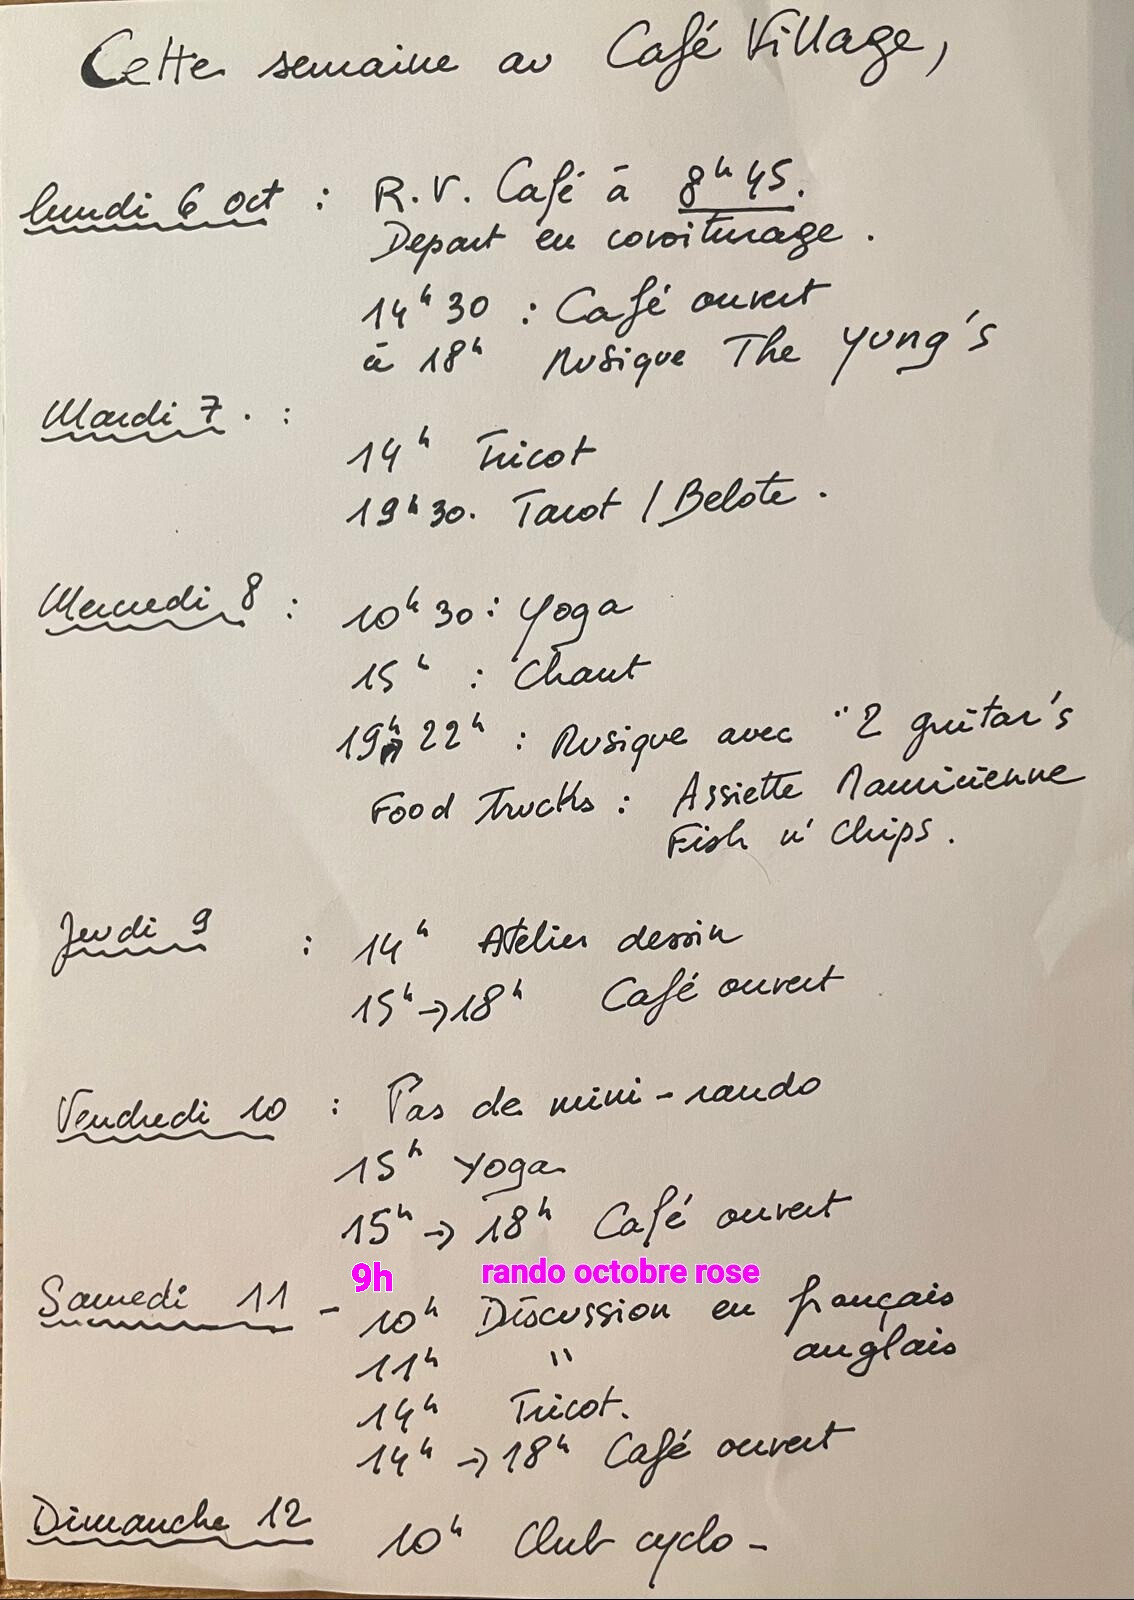 Cette semaine au Café Village,
lundi 6 oct : R.V. Café à 8h45.
Depart en covoiturage.
14h30 : Café ouvert
à 18h Musique The Yung's
Mardi 7. :
14h Tricot
19h30. Tarot / Belote.
Mercredi 8 : 10h30 : Yoga
15h : Chant
19h → 22h : Musique avec "2 guitar's
Food Trucks : Assiette Mauricienne
Fish n' chips.
Jeudi 9 : 14h Atelier dessin
15h → 18h Café ouvert
Vendredi 10 : Pas de mini-rando
15h Yoga
15h → 18h Café ouvert
9h rando octobre rose
Samedi 11 - 10h Discussion en français
11h " anglais
14h Tricot.
14h → 18h Café ouvert
Dimanche 12 10h Club cyclo -